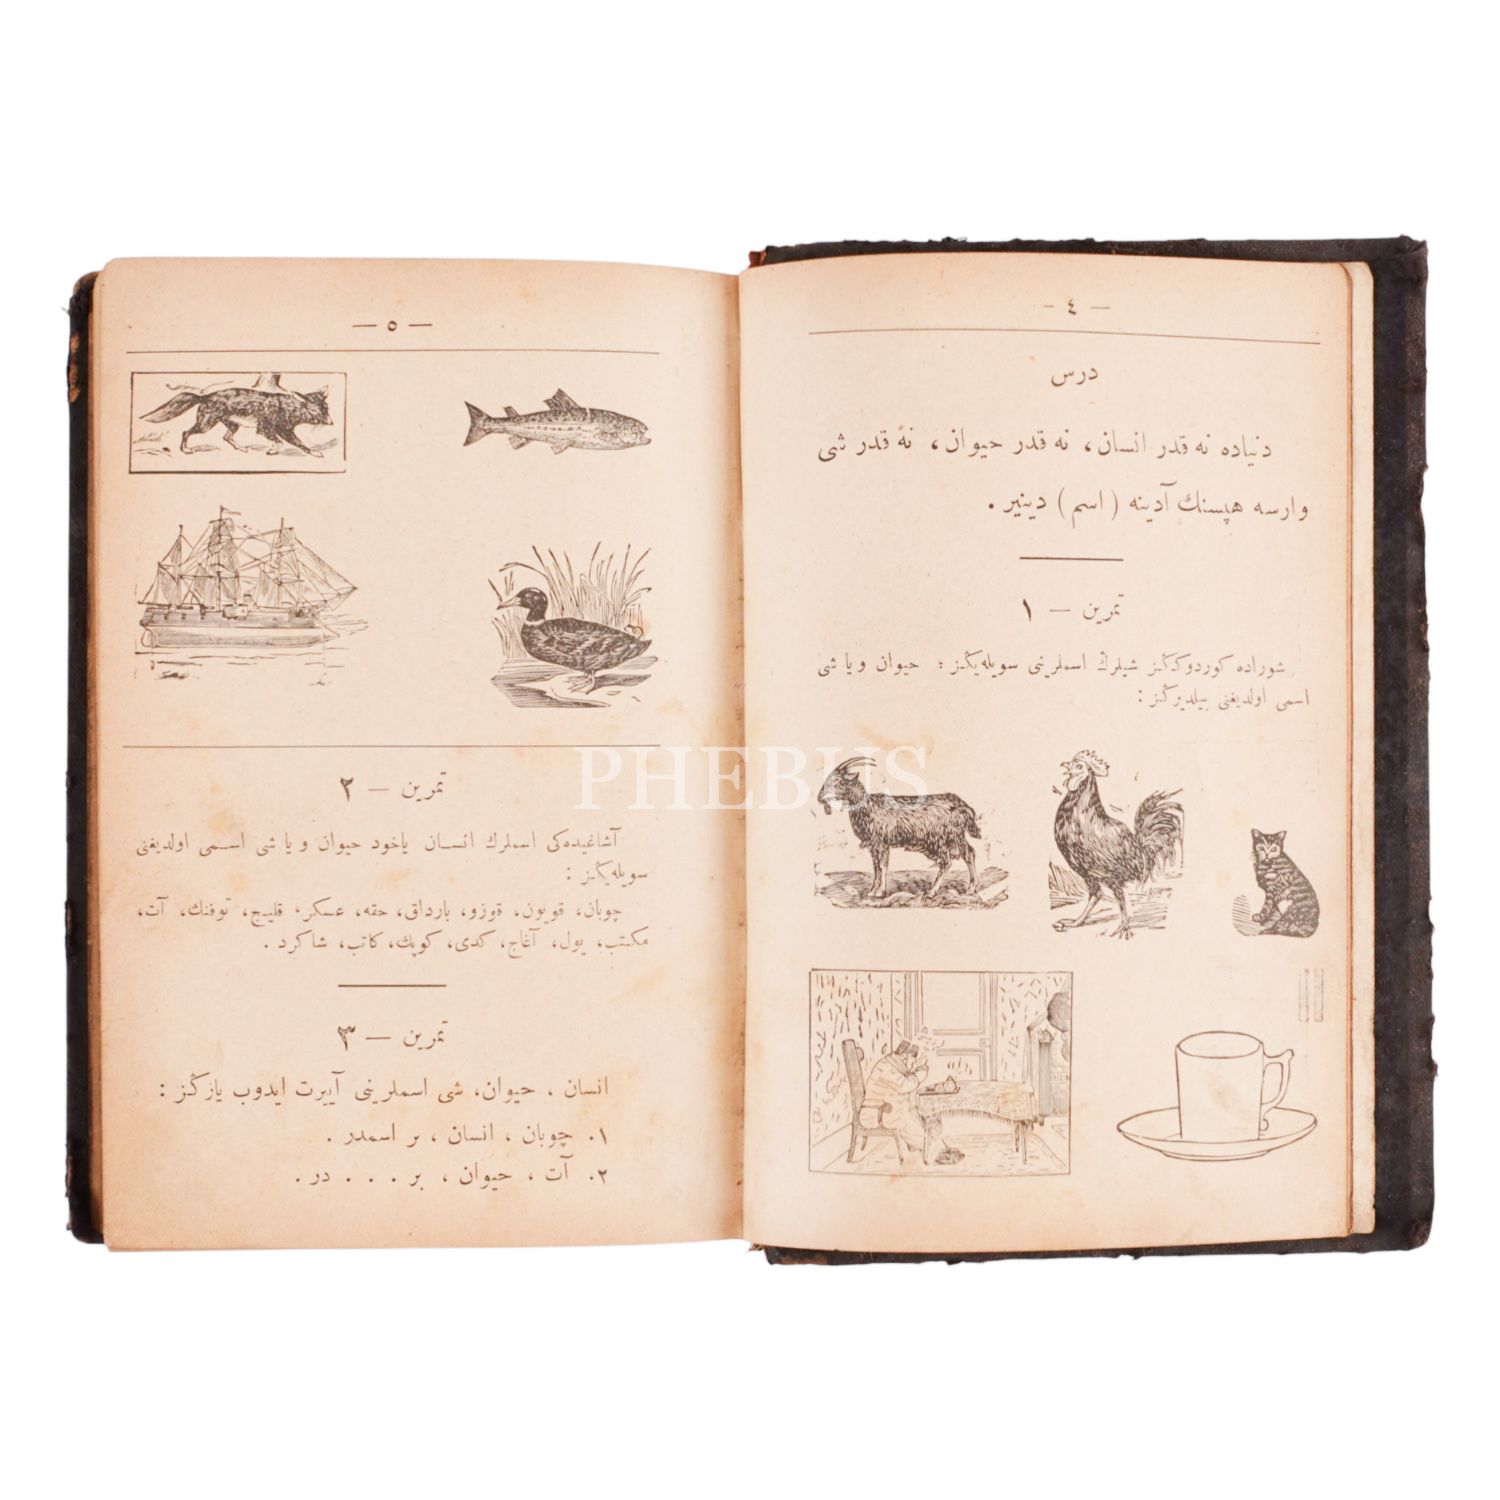 — ٤ —
درس
دنیاده نه قدر انسان، نه قدر حیوان، نه قدر شی
وارسه هپسنك آدینه (اسم) دینیر.
تمرین — ١
شوراده كوردوكڭز شیلرڭ اسملرینی سویله‌یڭز؛ حیوان ویا شی
اسمی اولدیغنی بیلدیرڭز:
— ٥ —
تمرین — ٢
آشاغیده‌كی اسملرك انسان یاخود حیوان ویا شی اسمی اولدیغنی
سویله‌یڭز:
چوبان، قویون، قوزو، بارداق، حقه، عسكر، قلیچ، توفنك، آت،
مكتب، یول، آغاج، كدی، كوپك، كاتب، شاكرد.
تمرین — ٣
انسان، حیوان، شی اسملرینی آییرت ایدوب یازڭز:
١. چوبان، انسان، بر اسمدر.
٢. آت، حیوان، بر . . . در.
PHEBUS